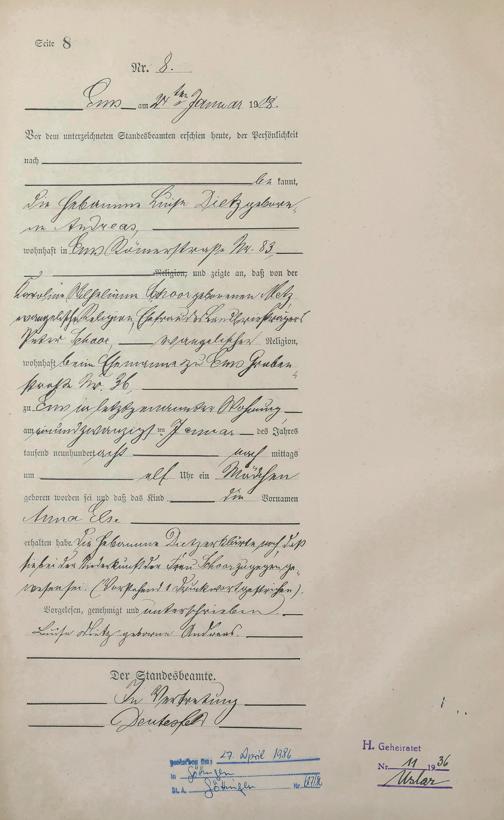 Seite 8
Nr. 8.
Ems am 24ten Januar 1908.
Vor dem unterzeichneten Standesbeamten erschien heute, der Persönlichkeit
nach
be kannt,
die Hebamme Luise Dietz gebore-
ne Andreas,
wohnhaft in Ems Römerstraße Nr. 83
Religion, und zeigte an, daß von der
Karoline Wilhelmine Schoor geborenen Metz
evangelischer Religion, Ehefrau des Landbriefträgers
Peter Schoor, evangelischer Religion,
wohnhaft beim Ehemanne zu Ems Graben-
straße Nr. 36
zu Ems in letztgenannter Wohnung
am einundzwanzigsten Januar des Jahres
tausend neunhundert acht nach mittags
um elf Uhr ein Mädchen
geboren worden sei und daß das Kind die Vornamen
Anna Else
erhalten habe. Die Hebamme Dietz erklärte noch, daß
sie bei der Niederkunft der Frau Schoor zugegen ge-
wesen sei. (Vorstehend 1 Druckwort gestrichen).
Vorgelesen, genehmigt und unterschrieben
Luise Dietz geborne Andreas.
Der Standesbeamte.
In Vertretung
gestorben am: 27. April 1986
in Göttingen
St. A. Göttingen Nr.
H. Geheiratet
Nr. 11 1936
Uslar